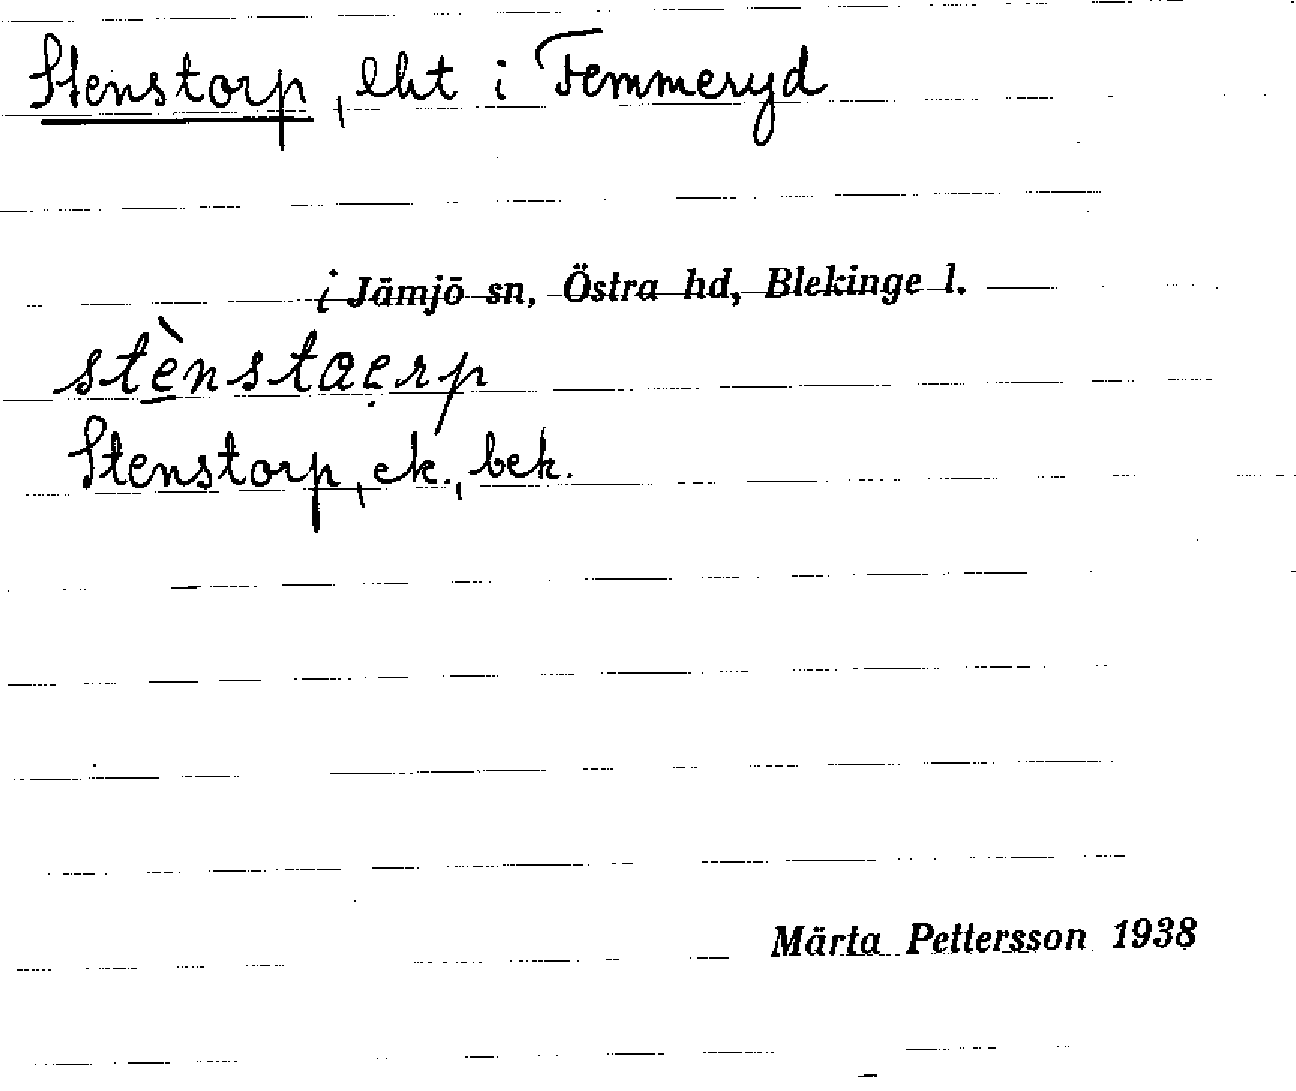 Stenstorp, lht i Femmeryd
i Jämjö sn, Östra hd, Blekinge l.
stènstaęrp
Stenstorp, ek., bek.
Märta Pettersson 1938